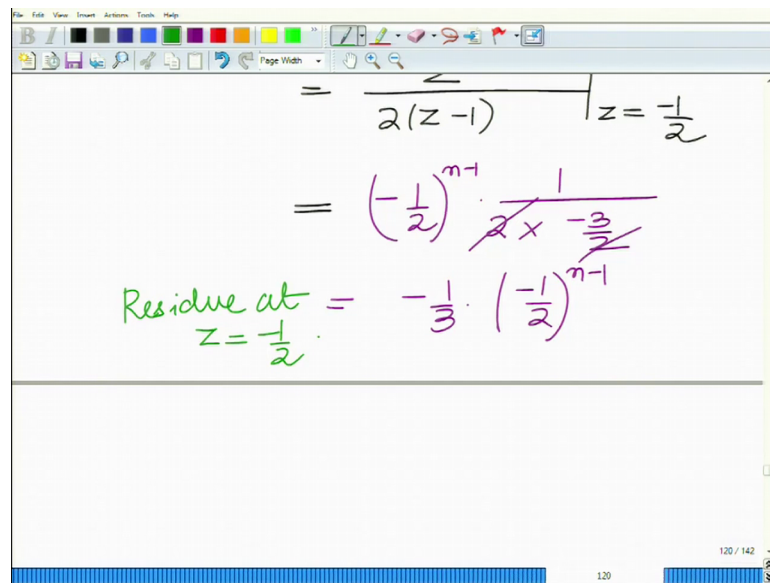 File Edit View Insert Actions Tools Help
B I
Page Width
=
2(z-1) | z = -1/2
= (-1/2)^(n-1) · 1/(2 × -3/2)
Residue at = -1/3 · (-1/2)^(n-1)
z = -1/2 .
120 / 142
120